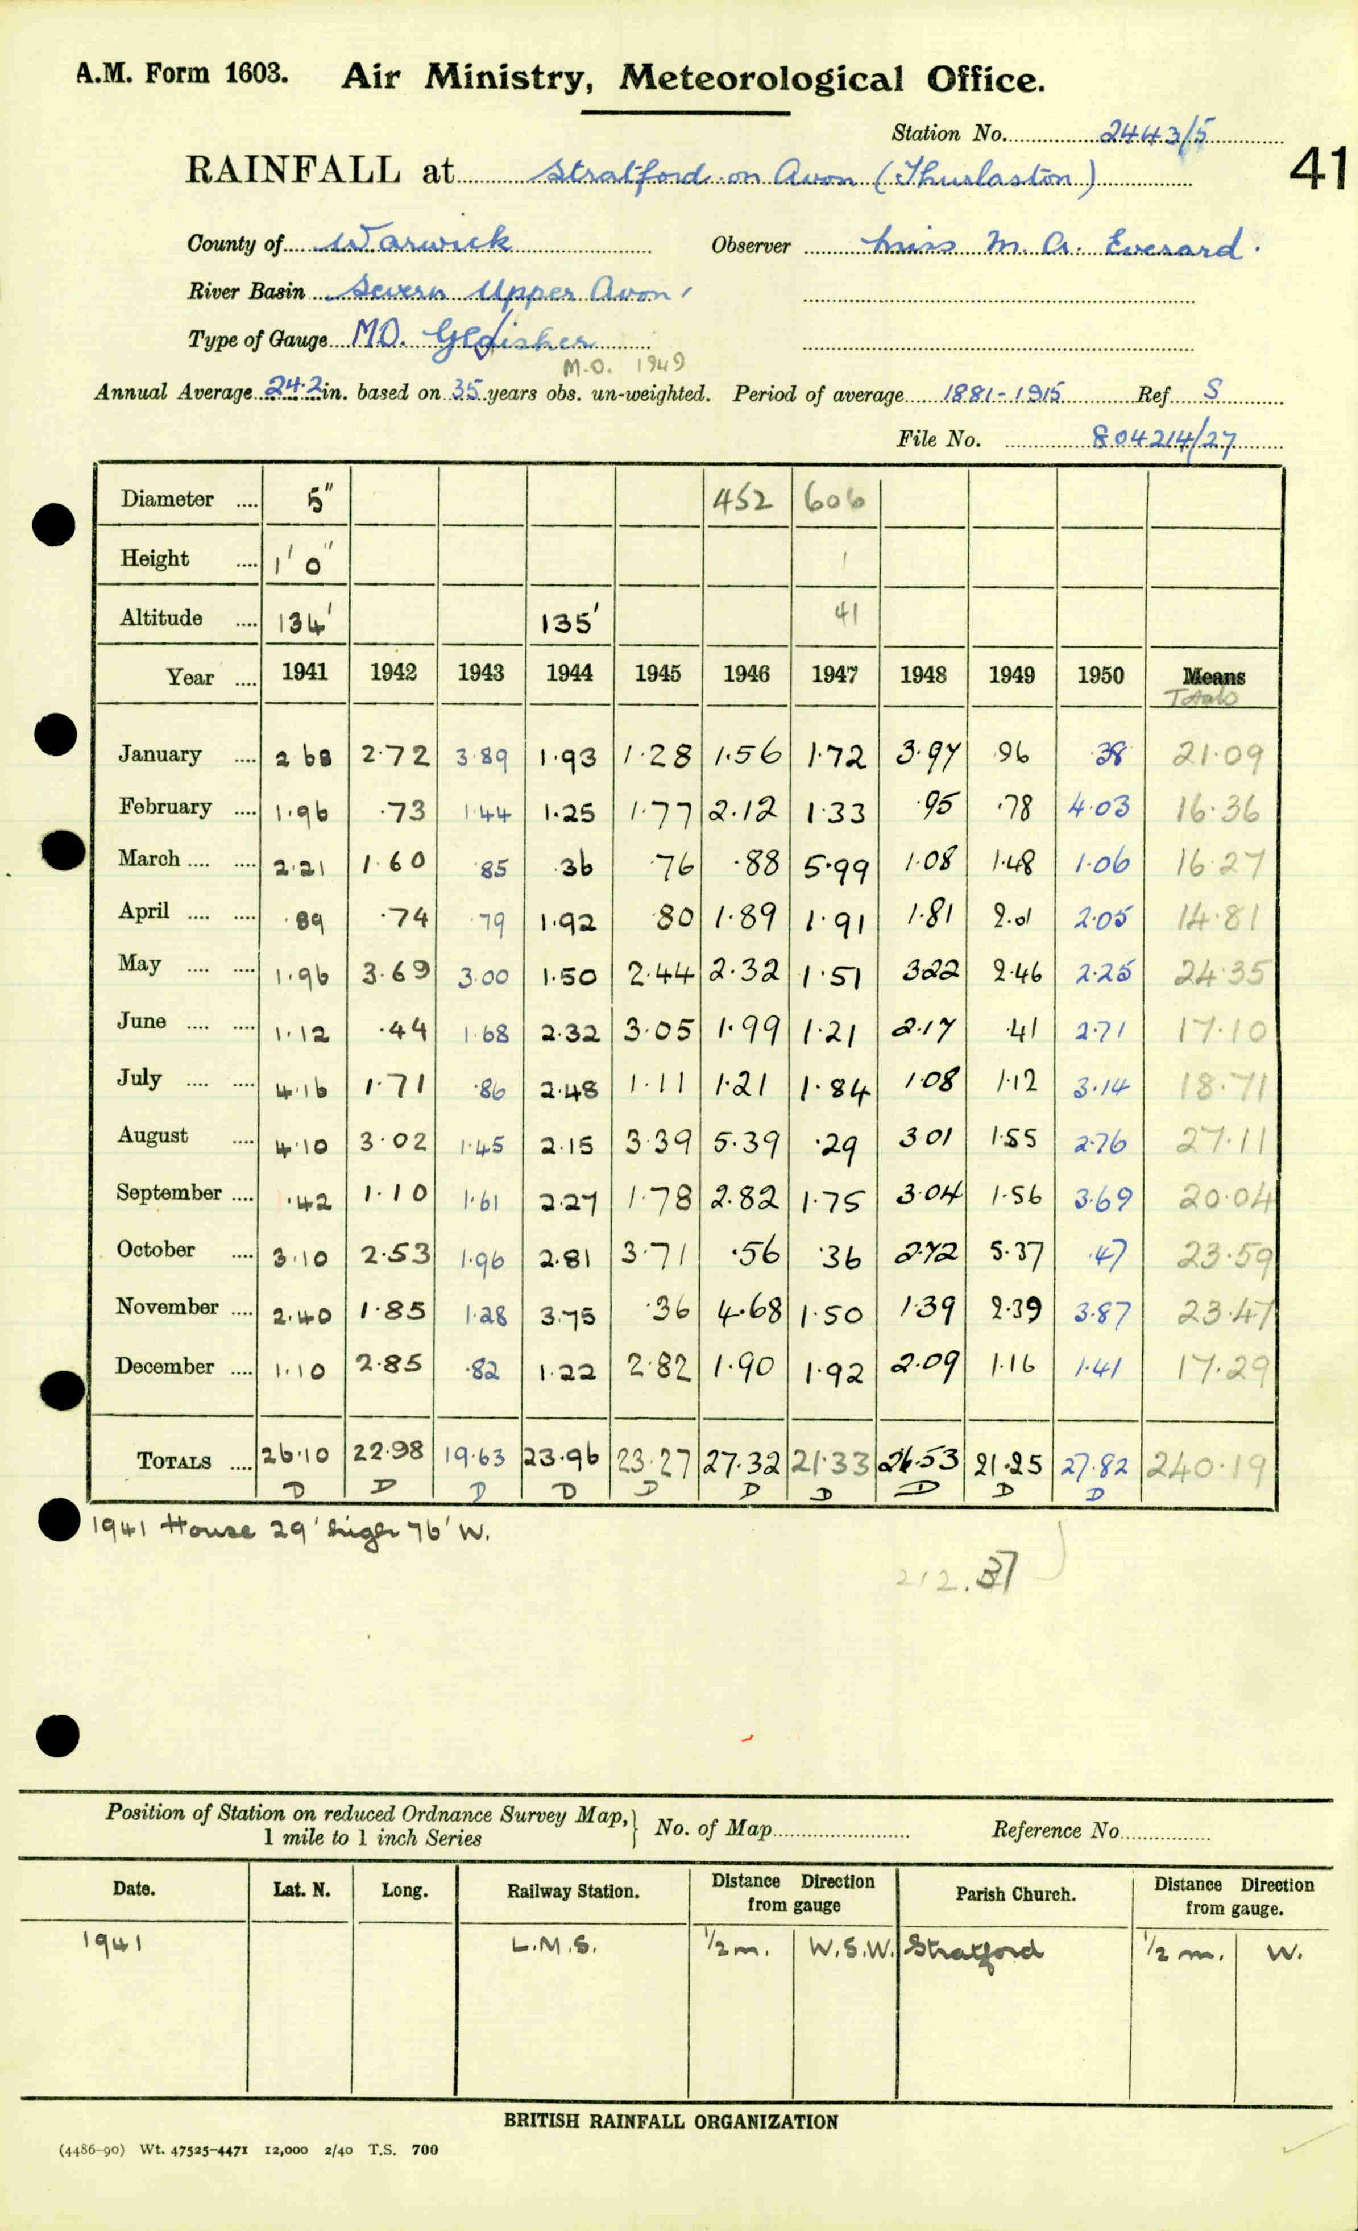 A.M. Form 1603. Air Ministry, Meteorological Office.
Station No. 2443/5
41
RAINFALL at Stratford on Avon (Thurlaston)
County of Warwick Observer Miss M. A. Everard.
River Basin Severn Upper Avon
Type of Gauge M.O.
M.O. 1949
Annual Average 24.2 in. based on 35 years obs. un-weighted. Period of average 1881-1915 Ref S
File No. 804214/27
Diameter .... 5" 452 606
Height .... 1' 0" 1
Altitude .... 134' 135' 41
Year .... 1941 1942 1943 1944 1945 1946 1947 1948 1949 1950 Means
Totals
January .... 2.68 2.72 3.89 1.93 1.28 1.56 1.72 3.97 .96 .38 21.09
February .... 1.96 .73 1.44 1.25 1.77 2.12 1.33 .95 .78 4.03 16.36
March .... .... 2.21 1.60 .85 .36 .76 .88 5.99 1.08 1.48 1.06 16.27
April .... .... .89 .74 .79 1.92 .80 1.89 1.91 1.81 2.01 2.05 14.81
May .... .... 1.96 3.69 3.00 1.50 2.44 2.32 1.51 3.22 2.46 2.25 24.35
June .... .... 1.12 .44 1.68 2.32 3.05 1.99 1.21 2.17 .41 2.71 17.10
July .... .... 4.16 1.71 .86 2.48 1.11 1.21 1.84 1.08 1.12 3.14 18.71
August .... 4.10 3.02 1.45 2.15 3.39 5.39 .29 3.01 1.55 2.76 27.11
September .... .42 1.10 1.61 2.27 1.78 2.82 1.75 3.04 1.56 3.69 20.04
October .... 3.10 2.53 1.96 2.81 3.71 .56 .36 2.72 5.37 .47 23.59
November .... 2.40 1.85 1.28 3.75 .36 4.68 1.50 1.39 2.39 3.87 23.47
December .... 1.10 2.85 .82 1.22 2.82 1.90 1.92 2.09 1.16 1.41 17.29
TOTALS .... 26.10 22.98 19.63 23.96 23.27 27.32 21.33 26.53 21.25 27.82 240.19
D D D D D D D D D D
1941 House 29' high 76' W.
212.37
Position of Station on reduced Ordnance Survey Map, 1 mile to 1 inch Series } No. of Map Reference No
Date. Lat. N. Long. Railway Station. Distance Direction from gauge Parish Church. Distance Direction from gauge.
1941 L.M.S. 1/2 m. W.S.W. Stratford 1/2 m. W.
BRITISH RAINFALL ORGANIZATION
(4486-90) Wt. 47525-4471 12,000 2/40 T.S. 700